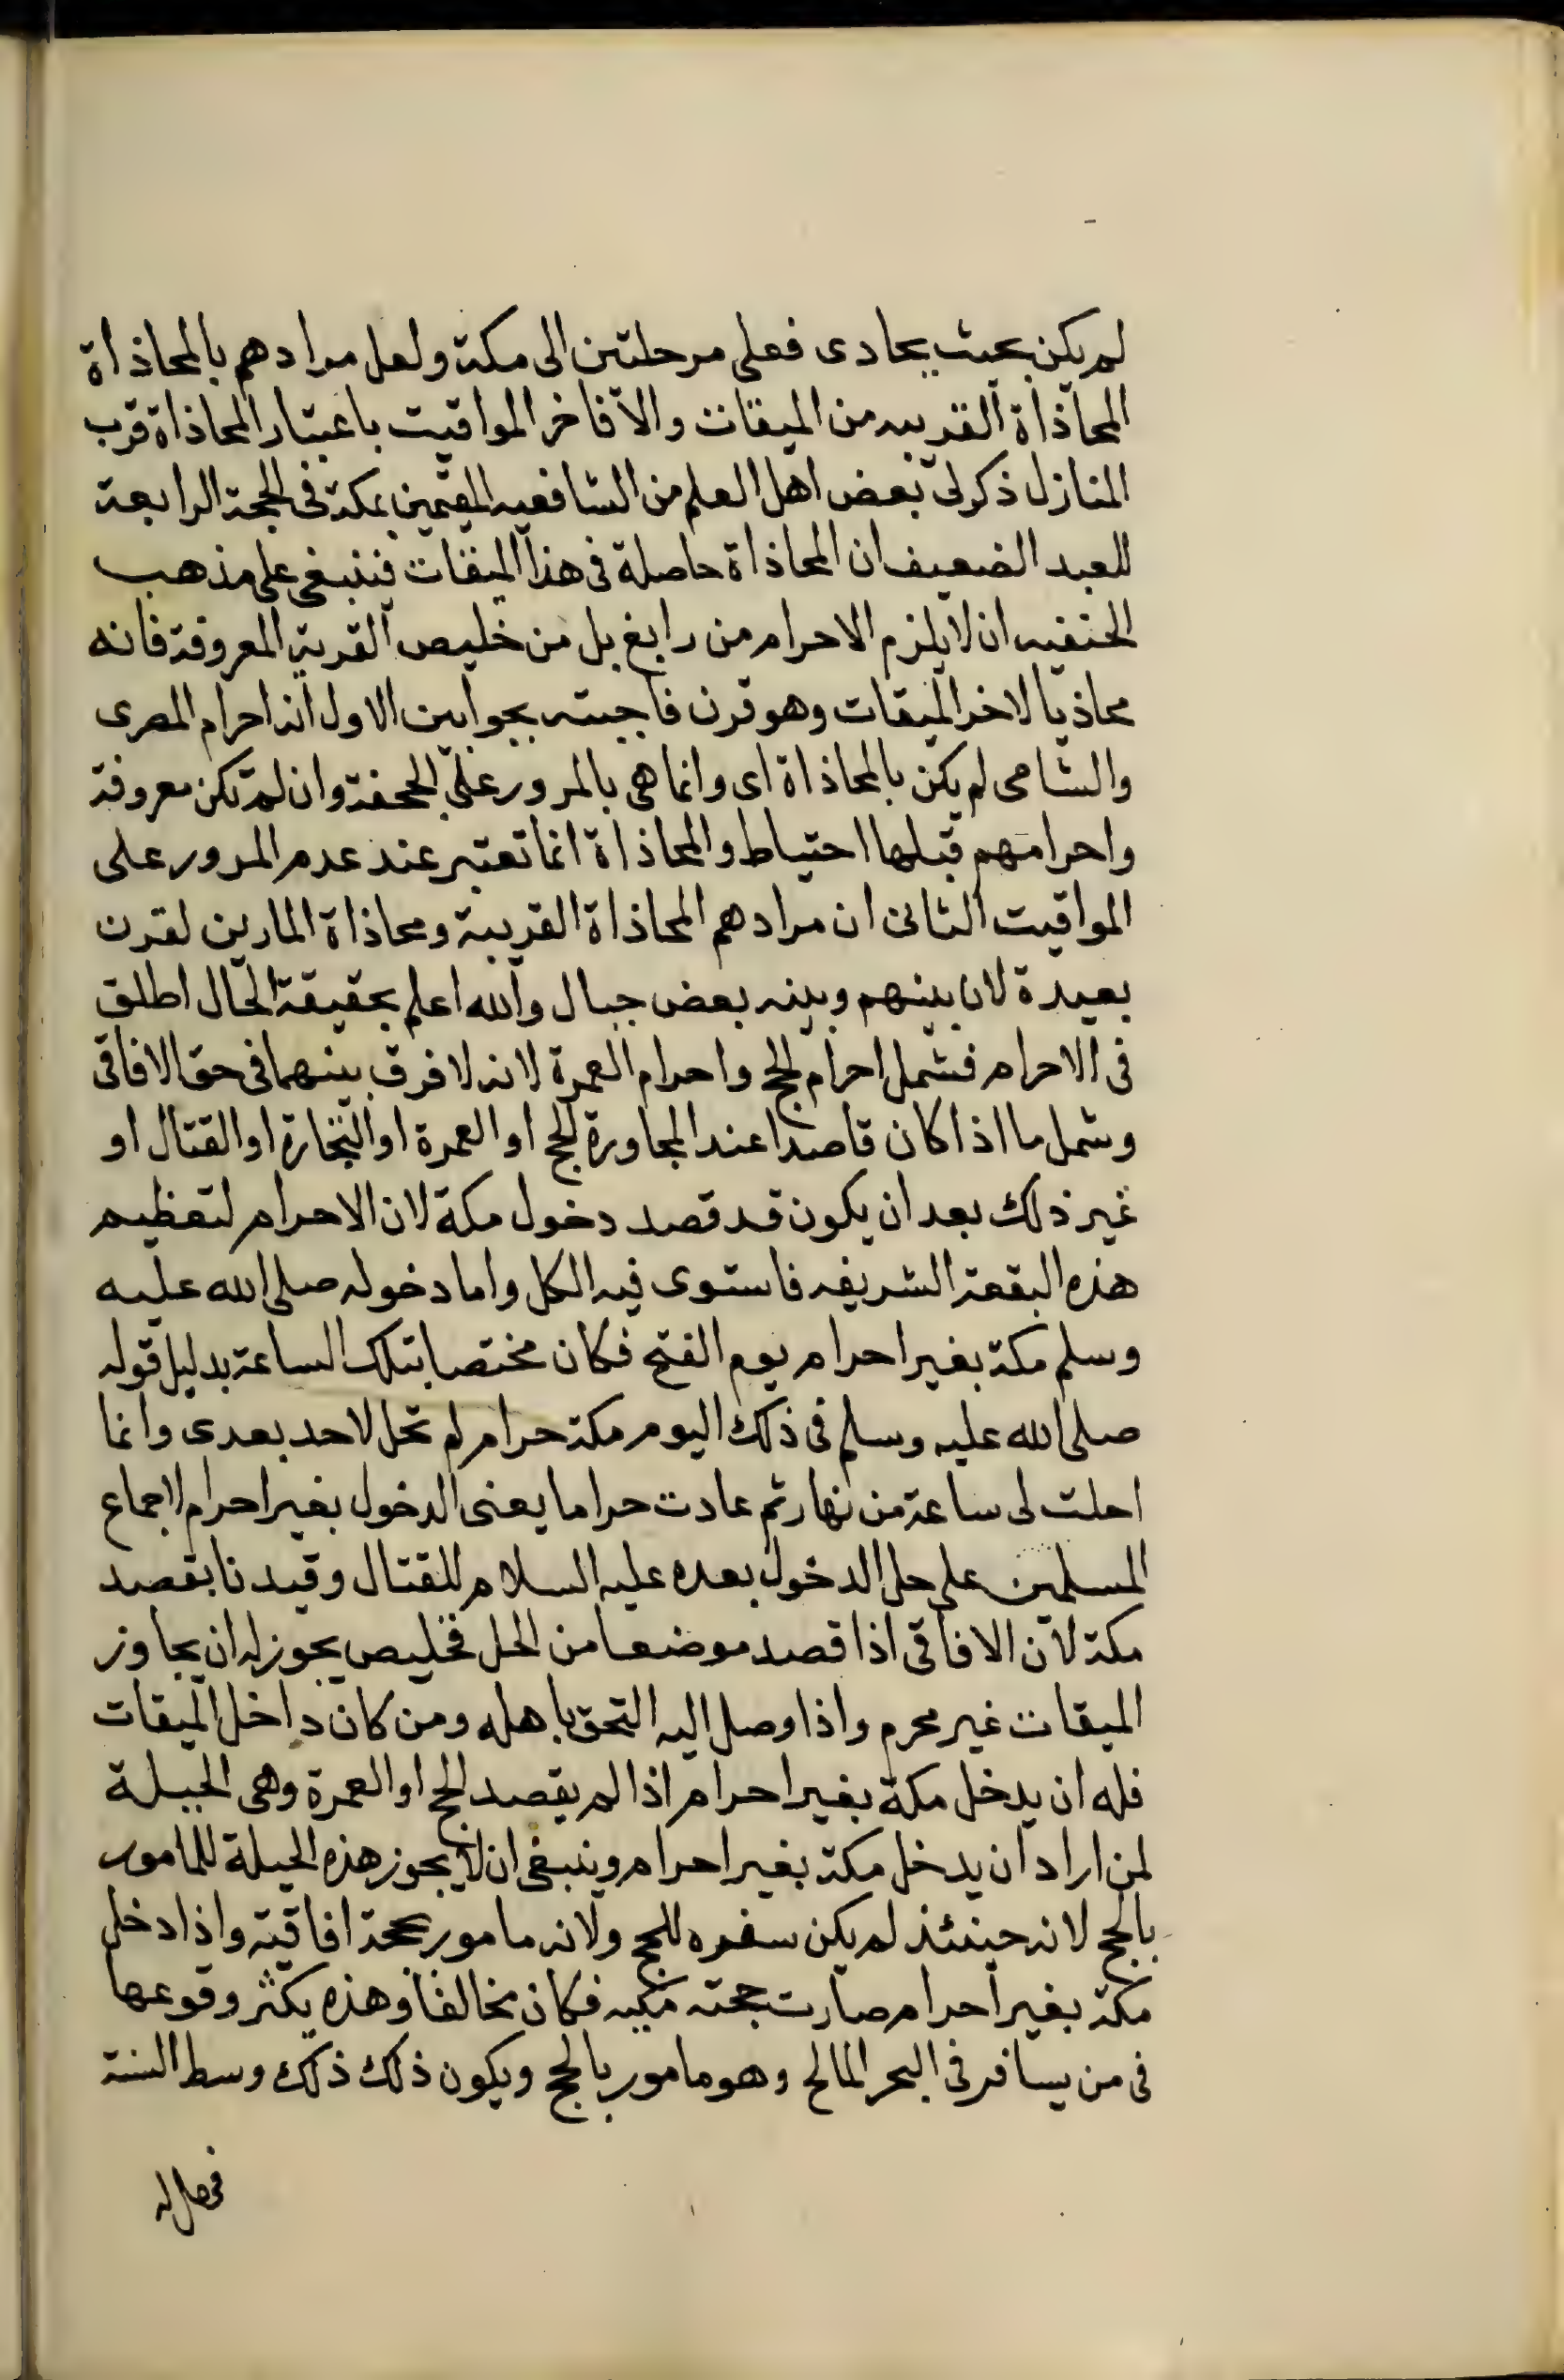 لم يكن بحيث يحادى فعلى مرحلتين الى مكة ولعل مرادهم بالمحاذاة
المحاذاة القريبه من الميقات والا فاخر المواقيت باعتبار المحاذاة قرب
المنازل ذكر لى بعض اهل العلم من الشافعيه المقيمين بمكة فى الحجة الرابعة
للعبد الضعيف ان المحاذاة حاصلة فى هذا الميقات فينبغى على مذهب
الحنفيه ان لا يلزم الاحرام من رابغ بل من خليص القرية المعروفة فانه
محاذيا لاخر الميقات وهو قرن فاجبته بجوابين الاول انه احرام المصرى
والشامى لم يكن بالمحاذاة اى وانما هى بالمرور على الجحفة وان لم تكن معروفة
واحرامهم قبلها احتياط والمحاذاة انما تعتبر عند عدم المرور على
المواقيت الثانى ان مرادهم المحاذاة القريبة ومحاذاة المارين لقرن
بعيدة لان بينهم وبينه بعض جبال والله اعلم بحقيقة الحال اطلق
فى الاحرام فشمل احرام الحج واحرام العمرة لانه لا فرق بينهما فى حق الافاقى
وشمل ما اذا كان قاصدا عند المجاورة الحج او العمرة او التجارة او القتال او
غير ذلك بعد ان يكون قد قصد دخول مكة لان الاحرام لتعظيم
هذه البقعة الشريفه فاستوى فيه الكل واما دخوله صلى الله عليه
وسلم مكة بغير احرام يوم الفتح فكان مختصا بتلك الساعة بدليل قوله
صلى الله عليه وسلم فى ذلك اليوم مكة حرام لم تحل لاحد بعدى وانما
احلت لى ساعة من نهار ثم عادت حراما يعنى الدخول بغير احرام لاجماع
المسلمين على حل الدخول بعده عليه السلام للقتال وقيدنا بقصد
مكة لان الافاقى اذا قصد موضعا من الحل فخليص يجوز له ان يجاوز
الميقات غير محرم واذا وصل اليه التحق باهله ومن كان داخل الميقات
فله ان يدخل مكة بغير احرام اذا لم يقصد الحج او العمرة وهى الحيلة
لمن اراد ان يدخل مكة بغير احرام وينبغى ان لا يجوز هذه الحيلة للمامور
بالحج لانه حينئذ لم يكن سفره للحج ولانه مامور بحجة افاقية واذا دخل
مكة بغير احرام صارت حجته مكيه فكان مخالفا وهذه يكثر وقوعها
فى من يسافر فى البحر المالح وهو مامور بالحج ويكون ذلك ذلك وسط السنة
فهل له